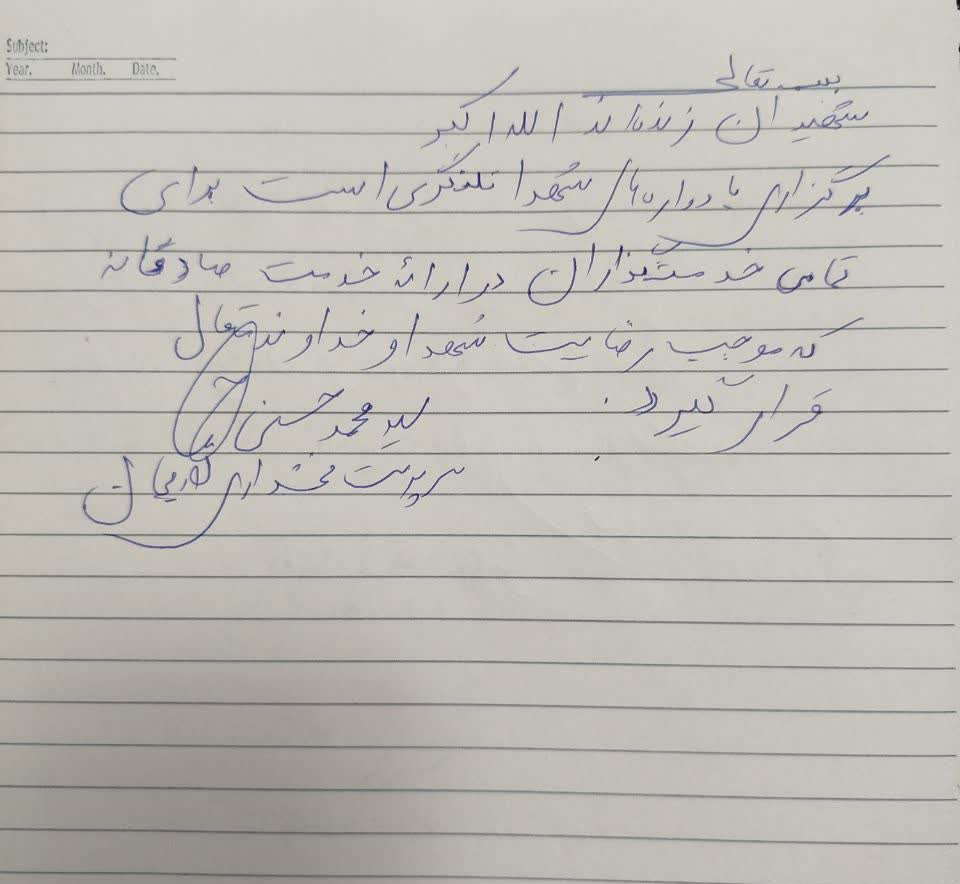 Subject:
Year. Month. Date.
بسمه تعالی
شهیدان زنده‌اند الله اکبر
برگزاری یادواره‌های شهدا تلنگری است برای
تمامی خدمت‌گذاران در ارائه خدمت صادقانه
که موجب رضایت شهدا و خداوند متعال
قرار گیرد.
سید محمد حسنی
سرپرست بخشداری